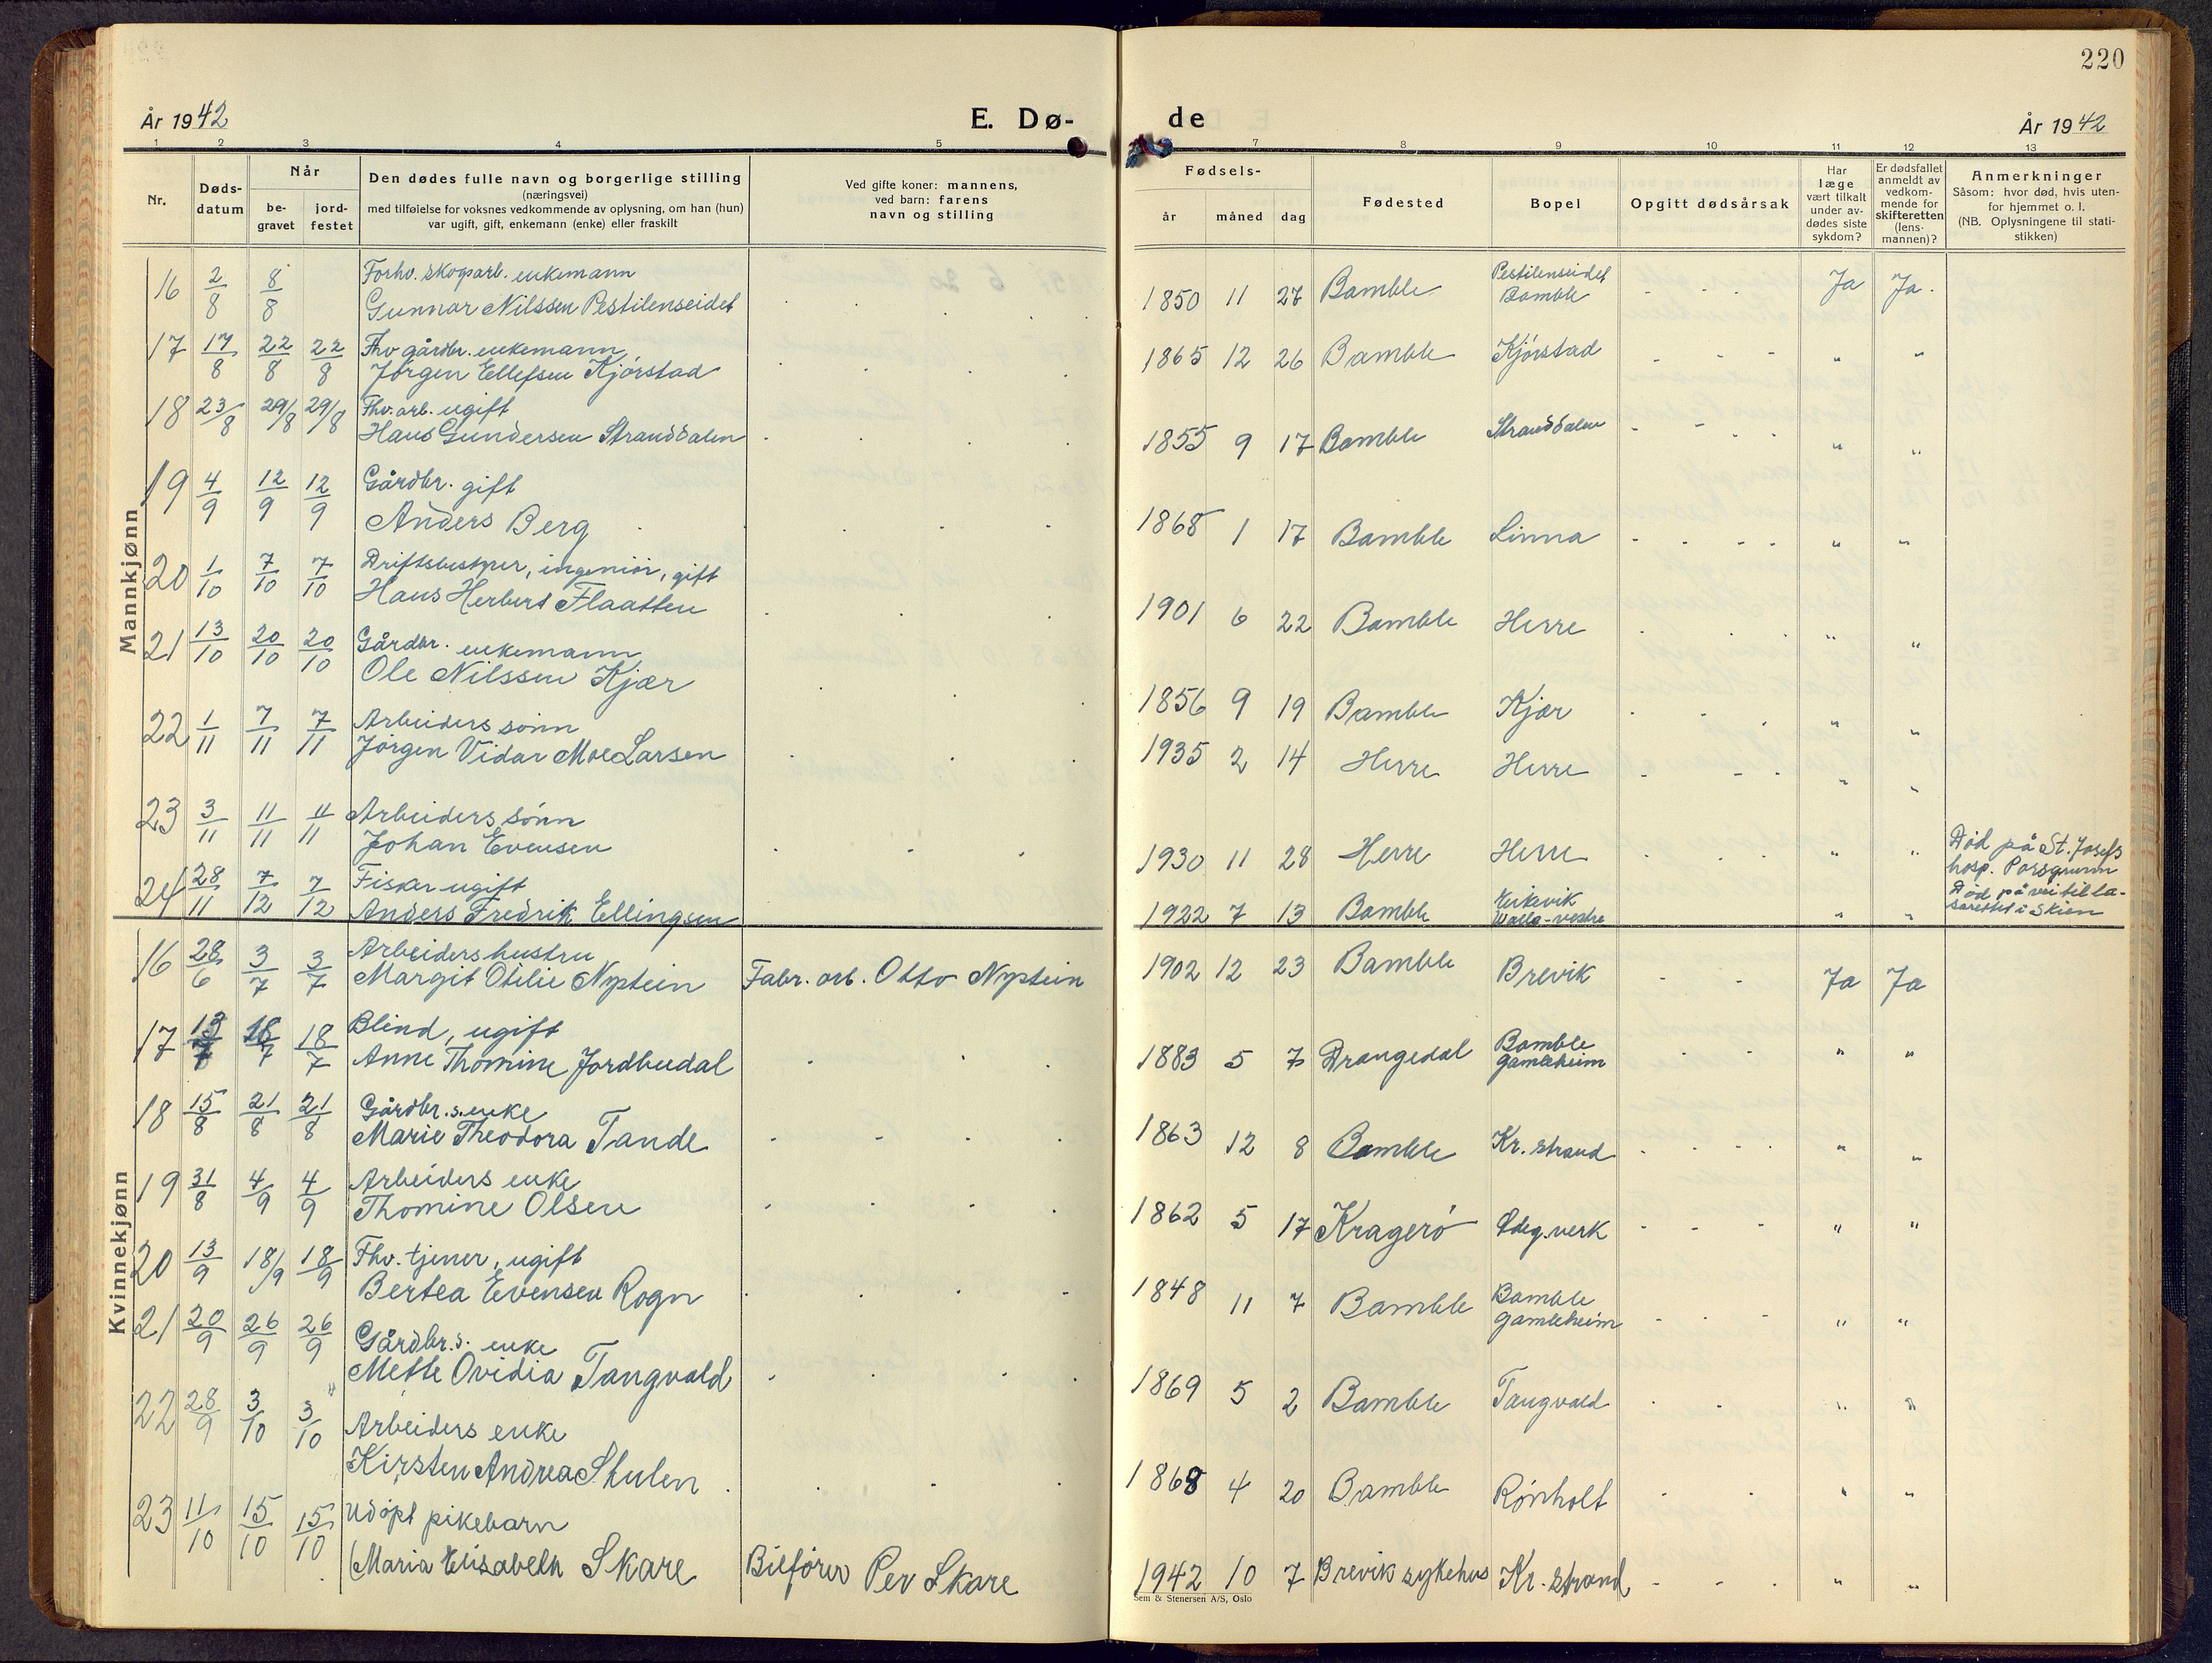 220
År 1942
E. Dø-
de
År 1942
1 2 3 4 5 7 8 9 10 11 12 13
Nr.
Døds-
datum
Når
be-
gravet
jord-
festet
Den dødes fulle navn og borgerlige stilling
(næringsvei)
med tilføielse for voksnes vedkommende av oplysning, om han (hun)
var ugift, gift, enkemann (enke) eller fraskilt
Ved gifte koner: mannens,
ved barn: farens
navn og stilling
Fødsels-
år måned dag
Fødested
Bopel
Opgitt dødsårsak
Har
læge
vært tilkalt
under av-
dødes siste
sykdom?
Er dødsfallet
anmeldt av
vedkom-
mende for
skifteretten
(lens-
mannen)?
Anmerkninger
Såsom: hvor død, hvis uten-
for hjemmet o. l.
(NB. Oplysningene til stati-
stikken)
Mannkjønn
16 2/8 8/8 Forhv. skogsarb. enkemann
Gunnar Nilssen Pestilenseidet
1850 11 27 Bamble Pestilenseidet
Bamble Ja Ja.
17 17/8 22/8 22/8 Fhv gårdbr. enkemann
Jørgen Ellefsen Kjørstad
1865 12 26 Bamble Kjørstad " "
18 23/8 29/8 29/8 Fhv. arb. ugift
Hans Gundersen Stranddalen
1855 9 17 Bamble Stranddalen " "
19 4/9 12/9 12/9 Gårdbr. gift
Anders Berg
1868 1 17 Bamble Linna " "
20 1/10 7/10 7/10 Driftsbestyrer, ingeniør, gift
Hans Herbert Flaatten
1901 6 22 Bamble Herre " "
21 13/10 20/10 20/10 Gårdbr. enkemann
Ole Nilssen Kjær
1856 9 19 Bamble Kjær " "
22 1/11 7/11 7/11 Arbeiders sønn
Jørgen Vidar Moe Larsen
1935 2 14 Herre Herre " "
23 3/11 11/11 11/11 Arbeiders sønn
Johan Evensen
1930 11 28 Herre Herre " " Død på St. Josefs
hosp. Porsgrunn
24 28/11 7/12 7/12 Fisker ugift
Anders Fredrik Ellingsen
1922 7 13 Bamble Valle-vestre " " Død på vei til la-
sarettet i Skien
Kvinnekjønn
16 28/6 3/7 3/7 Arbeiders hustru
Margit Otilie Nystein Fabr. arb. Otto Nystein
1902 12 23 Bamble Brevik Ja Ja
17 13/7 18/7 18/7 Blind, ugift
Anne Thomine Jordbudal
1883 5 7 Drangedal Bamble
Gamleheim " "
18 15/8 21/8 21/8 Gårdbr.s. enke
Marie Theodora Tande
1863 12 8 Bamble Kr. strand " "
19 31/8 4/9 4/9 Arbeiders enke
Thomine Olsen
1862 5 17 Kragerø Ødeg.verk " "
20 13/9 18/9 18/9 Fhv. tjener, ugift
Bertea Evensen Rogn
1848 11 7 Bamble Bamble
Gamleheim " "
21 20/9 26/9 26/9 Gårdbr.s. enke
Mette Ovidia Tangvald
1869 5 2 Bamble Tangvald " "
22 28/9 3/10 3/10 Arbeiders enke
Kirsten Andrea Skulen
1868 4 20 Bamble Rønholt " "
23 11/10 15/10 15/10 Udøpt pikebarn
(Maria Elisabeth Skare Bilfører Per Skare
1942 10 7 Brevik sykehus Kr. strand " "
Sem & Stenersen A/S, Oslo